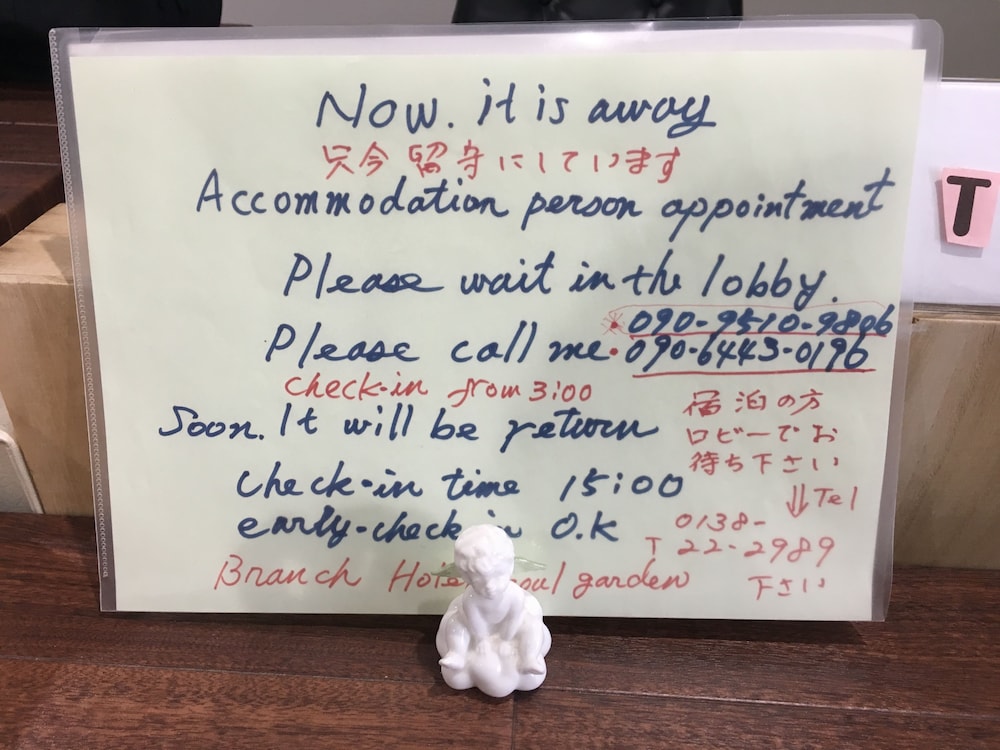 Now. it is away
只今留守にしています
Accommodation person appointment
Please wait in the lobby.
090-9510-9806
Please call me. 090-6443-0196
check-in from 3:00
Soon. It will be return
宿泊の方
ロビーでお
待ち下さい
⇓Tel
0138-
22-2989
下さい
check-in time 15:00
early-check in O.K
Branch garden
T